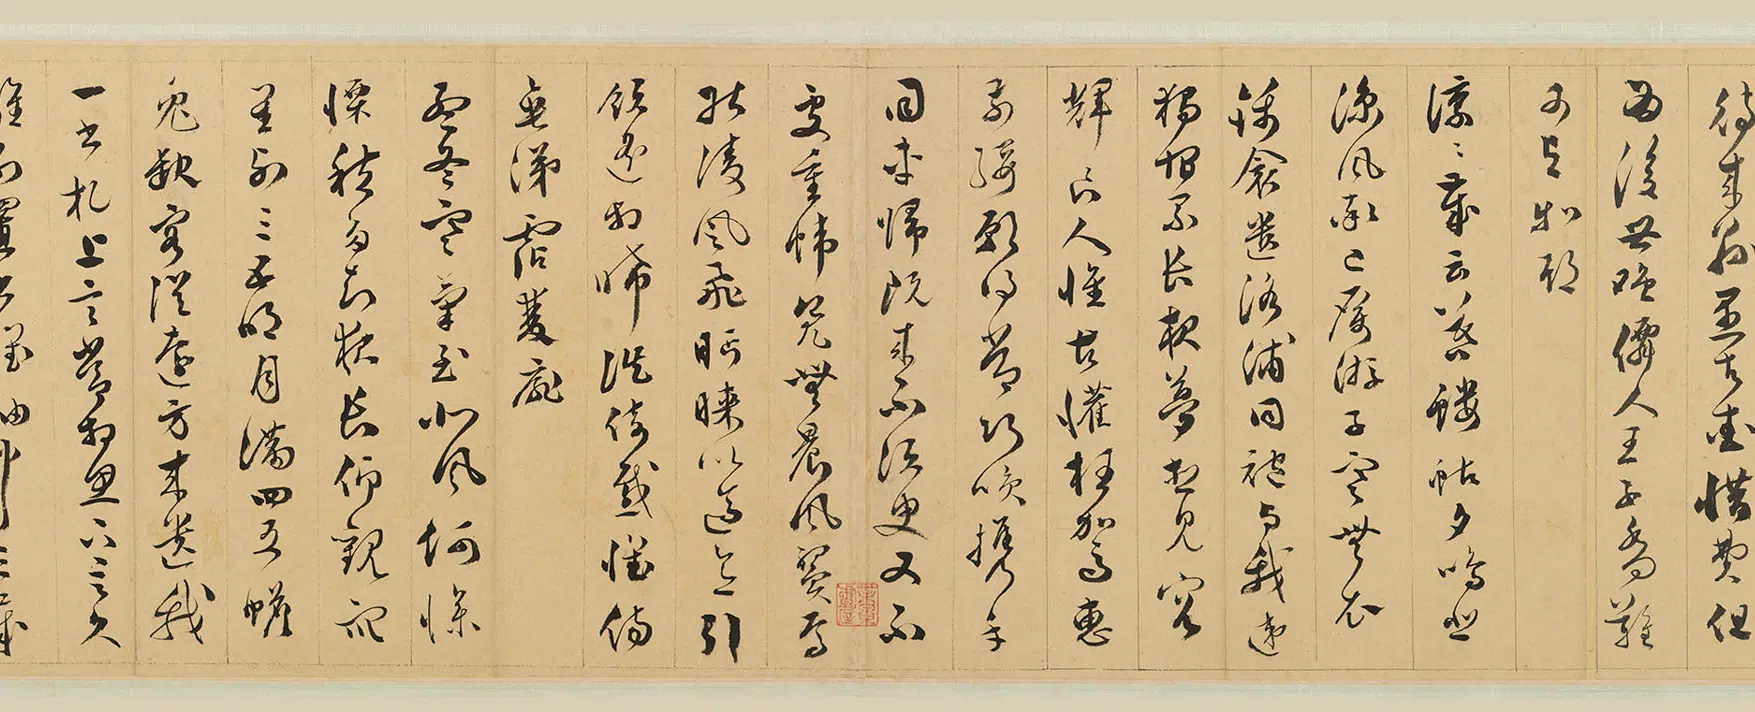 待来茲愚者愛惜費但
為後世嗤僊人王子喬難
可与等期
凜〻歲云暮螻蛄夕鳴悲
涼風率已厲游子寒無衣
錦衾遺洛浦同袍与我違
獨宿累長夜夢想見容
輝良人惟古懽枉駕惠
前綏願得常巧笑攜手
同車歸既来不須臾又不
處重幃亮無晨風翼焉
能淩風飛眄睞以適意引
領遙相睎徙倚感懷傷
垂涕霑雙扉
孟冬寒氣至北風何慘
慄愁多知夜長仰觀衆
星列三五明月滿四五蟾
兔缺客從遠方来遺我
一書札上言常相思下言久
離別置書懷袖中三歲